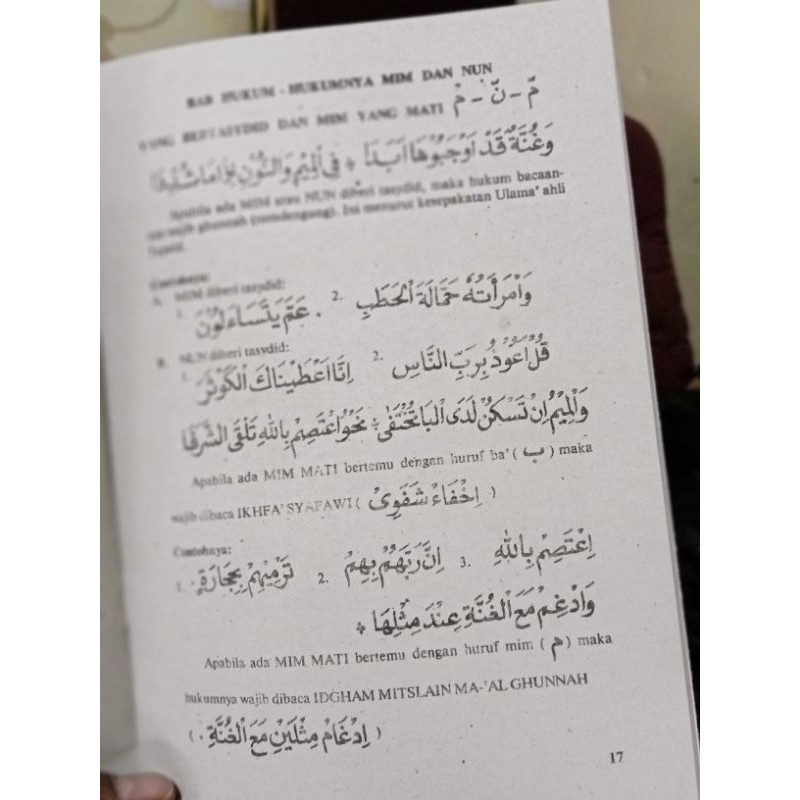 BAB HUKUM - HUKUMNYA MIM DAN NUN
YANG BERTASYDID DAN MIM YANG MATI مّ - نّ - مْ
وَغُنَّةٌ قَدْ اَوْجَبُوْهَا اَبَدًا * فِى الْمِيْمِ وَالنُّوْنِ اِذَا مَا شُدِّدَا
Apabila ada MIM atau NUN diberi tasydid, maka hukum bacaan-
nya wajib ghunnah (mendengung). Ini menurut kesepakatan Ulama' ahli
Tajwid.
Contohnya:
A. MIM diberi tasydid:
1. عَمَّ يَتَسَاءَلُوْنَ . 2. وَامْرَأَتُهُ حَمَّالَةَ الْحَطَبِ
B. NUN diberi tasydid:
1. اِنَّا اَعْطَيْنَاكَ الْكَوْثَرَ 2. قُلْ اَعُوْذُ بِرَبِّ النَّاسِ
وَالْمِيْمُ اِنْ تَسْكُنْ لَدَى الْبَا تُخْتَفَى * نَحْوُ اعْتَصِمْ بِاللهِ تَلْقَى الشَّرَفَا
Apabila ada MIM MATI bertemu dengan huruf ba' ( ب ) maka
wajib dibaca IKHFA' SYAFAWI ( اِخْفَاءْ شَفَوِىْ )
Contohnya:
1. تَرْمِيْهِمْ بِحِجَارَةٍ . 2. اِنَّ رَبَّهُمْ بِهِمْ 3. اِعْتَصِمْ بِاللهِ
وَادْغِمْ مَعَ الْغُنَّةِ عِنْدَ مِثْلِهَا *
Apabila ada MIM MATI bertemu dengan huruf mim ( م ) maka
hukumnya wajib dibaca IDGHAM MITSLAIN MA-'AL GHUNNAH
( اِدْغَامْ مِثْلَيْنِ مَعَ الْغُنَّةِ . )
17